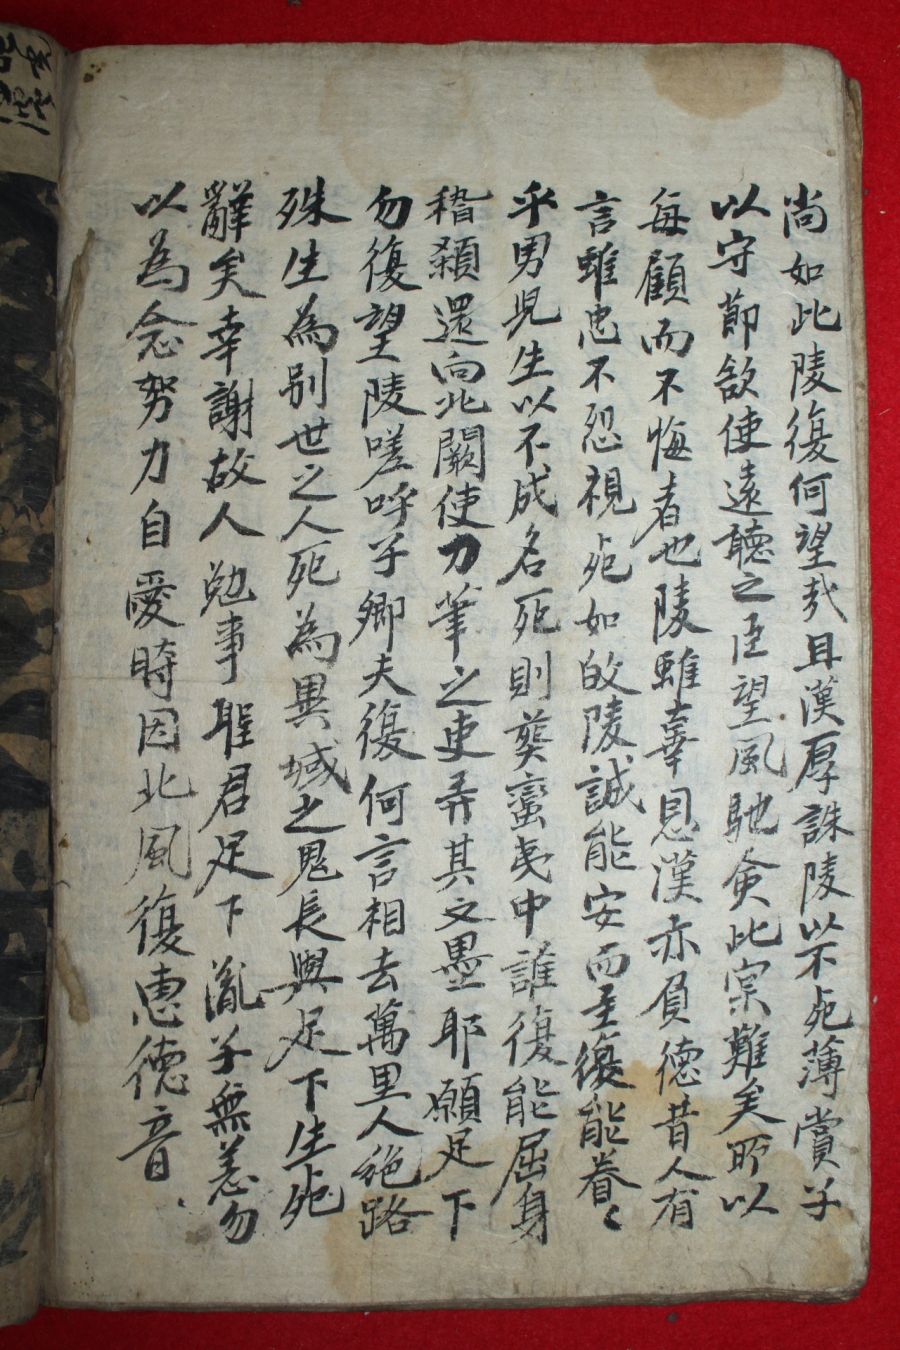 尚如此陵復何望哉且漢厚誅陵以不死薄賞子
以守節欲使遠聽之臣望風馳命此宲難矣所以
每顧而不悔者也陵雖辜恩漢亦負德昔人有
言雖忠不忍視死如皈陵誠能安而主復能眷〻
乎男児生以不成名死則葬蠻夷中誰復能屈身
稽顙還向北闕使刀筆之吏弄其文墨耶願足下
勿復望陵嗟呼子卿夫復何言相去萬里人絶路
殊生為别世之人死為異域之鬼長與足下生死
辭矣幸謝故人勉事聖君足下胤子無恙勿
以為念努力自愛時因北風復惠德音